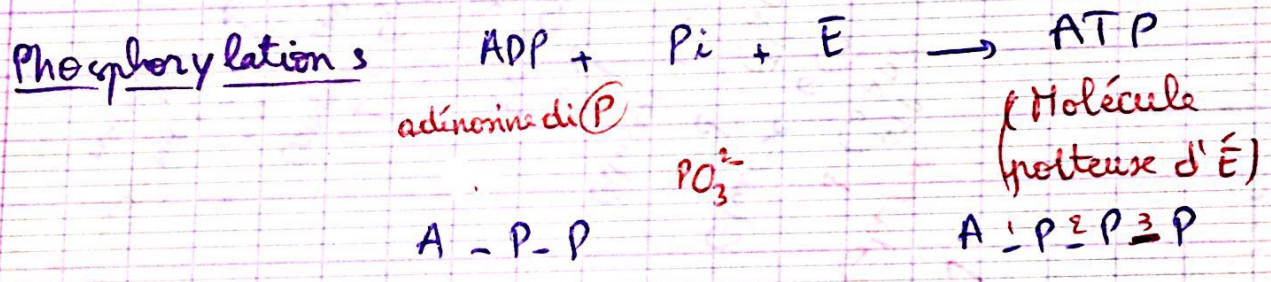 Phosphorylations ADP + Pi + E → ATP
adénosine di Ⓟ (Molécule
PO₃²⁻ porteuse d'É)
A - P - P A -¹ P -² P -³ P